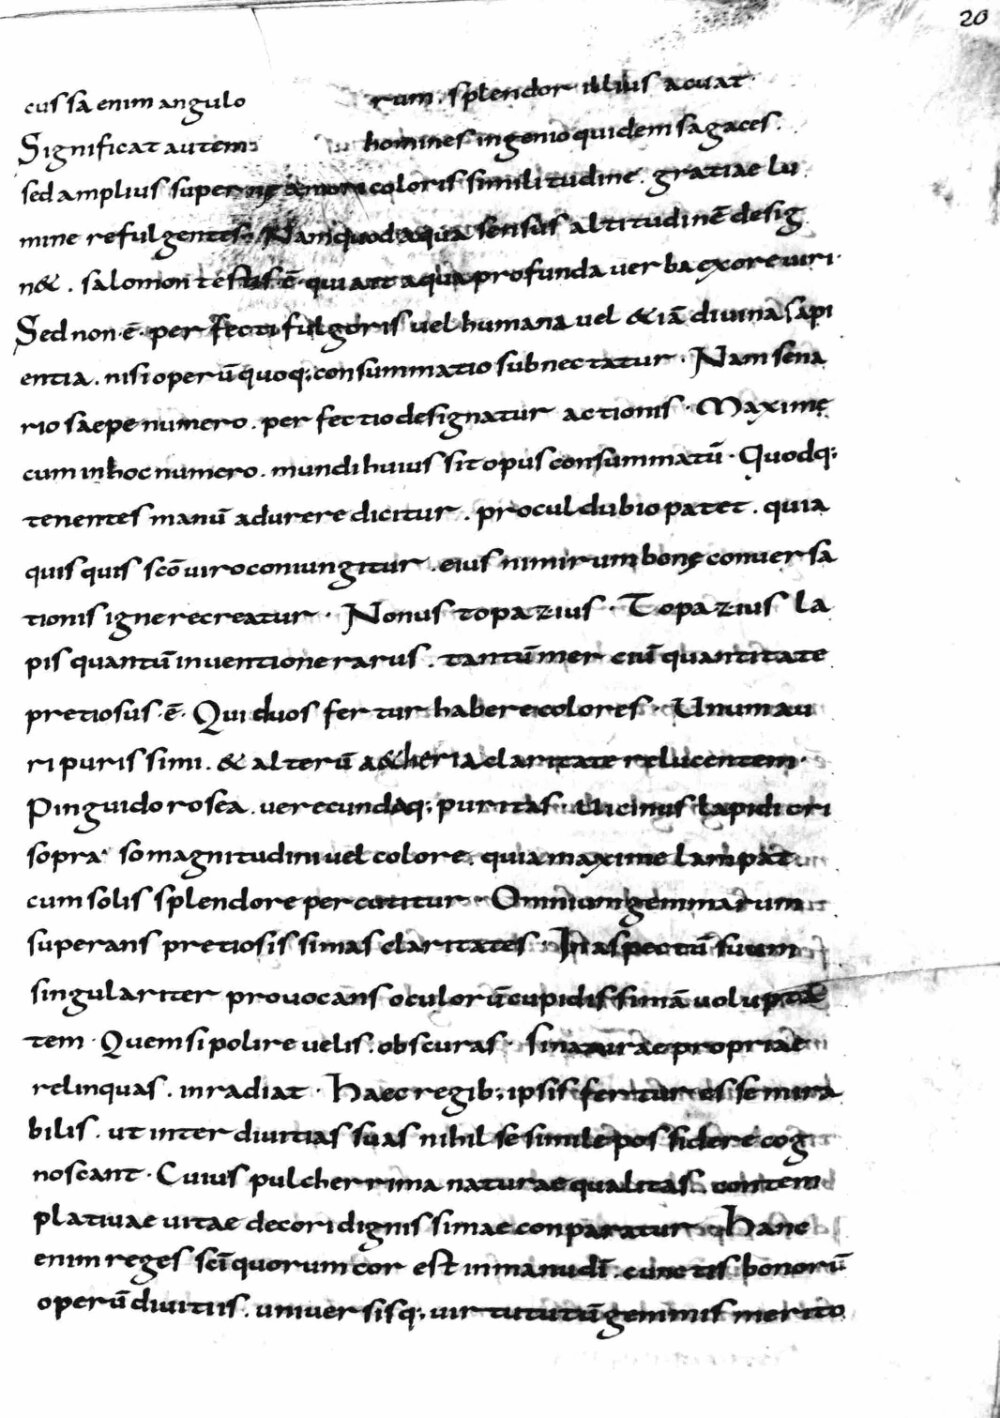 20
cussa enim angulo rum. splendor illius acuat.
Significat autem homines ingenio quidem sagaces.
sed amplius superni amoris coloris similitudine. gratiae lu
mine refulgentes. Nam quod aqua sensus altitudinē desig
n&. salomon testis ē. qui ait aqua profunda verba ex ore viri.
Sed non .ē. perfecti fulgoris vel humana vel &iā divina sapi
entia. nisi operū quoq; consummatio subnectatur. Nam sena
rio saepe numero. perfectio designatur actionis. Maxime
cum in hoc numero. mundi huius sit opus consummatū. Quodq;
tenentes manū adurere dicitur. procul dubio patet. quia
quisquis scō viro coniungitur. eius nimirum bonę conversa
tionis igne recreatur. Nonus topazius. Topazius la
pis quantū inventione rarus. tantū merciū quantitate
pretiosus .ē. Qui duos fertur habere colores. Unum au
ri purissimi. & alterū a&heria claritate relucentem.
Pinguido rosea. verecundaq; puritas. Vicinus lapidi cri
sopraso magnitudini vel colore. quia maxime lampat
cum solis splendore percutitur. Omnium gemmarum
superans pretiosissimas claritates. In aspectū suum
singulariter provocans oculorū cupidissimā volupta
tem. Quem si polire velis. obscuras. si naturae propriae
relinquas. inradiat. Haec regib; ipsis fertur esse mira
bilis. ut inter divitias suas nihil se simile possidere cog
noscant. Cuius pulcherrima naturae qualitas. contem
plativae vitae decori dignissimae conparatur. Hanc
enim reges scī quorum cor est in manu dī. cunctis bonorū
operū divitiis. universisq; virtututū gemmis merito